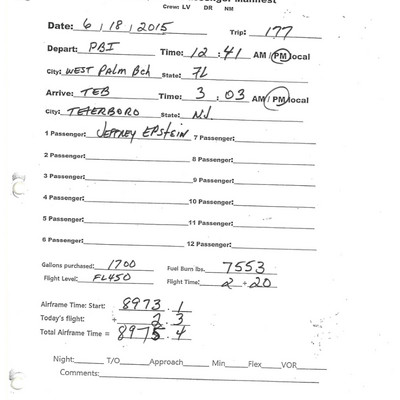 Passenger Manifest
Crew: LV DR NM
Date: 6 , 18 , 2015 Trip: 177
Depart: PBI Time: 12 : 41 AM / PM local
City: WEST PALM BCH State: FL
Arrive: TEB Time: 3 : 03 AM / PM local
City: TETERBORO State: NJ
1 Passenger: JEFFREY EPSTEIN 7 Passenger:
2 Passenger: 8 Passenger:
3 Passenger: 9 Passenger:
4 Passenger: 10 Passenger:
5 Passenger: 11 Passenger:
6 Passenger: 12 Passenger:
Gallons purchased: 1700 Fuel Burn lbs. 7553
Flight Level: FL450 Flight Time: 2 + 20
Airframe Time: Start: 8973 . 1
Today's flight: + 2 . 3
Total Airframe Time = 8975 . 4
Night: T/O Approach Min Flex VOR
Comments: